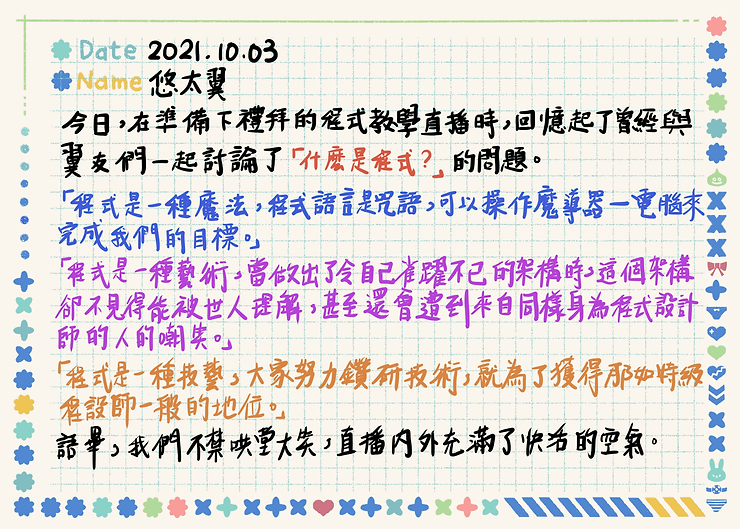 Date 2021.10.03
Name 悠太翼
今日,在準備下禮拜的程式教學直播時,回憶起了曾經與
翼友們一起討論了「什麼是程式?」的問題。
「程式是一種魔法,程式語言是咒語,可以操作魔導器—電腦來
完成我們的目標。」
「程式是一種藝術,當做出了令自己雀躍不已的架構時,這個架構
卻不見得能被世人理解,甚至還會遭到來自同樣身為程式設計
師的人的嘲笑。」
「程式是一種技藝,大家努力鑽研技術,就為了獲得那如特級
程設師一般的地位。」
語畢,我們不禁哄堂大笑,直播內外充滿了快活的空氣。